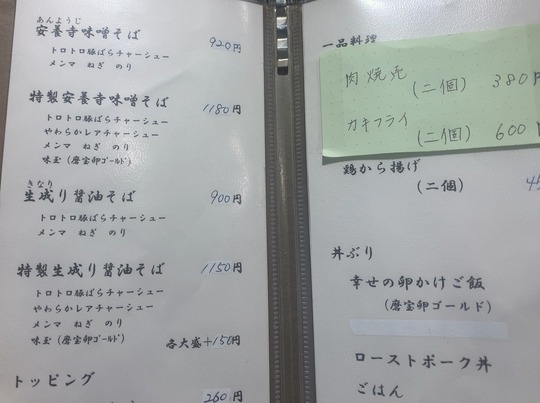 あんようじ
安養寺味噌そば 920円
トロトロ豚ばらチャーシュー
メンマ ねぎ のり
特製安養寺味噌そば 1180円
トロトロ豚ばらチャーシュー
やわらかレアチャーシュー
メンマ ねぎ のり
味玉(磨宝卵ゴールド)
きなり
生成り醤油そば 900円
トロトロ豚ばらチャーシュー
メンマ ねぎ のり
特製生成り醤油そば 1150円
トロトロ豚ばらチャーシュー
やわらかレアチャーシュー
メンマ ねぎ のり
味玉(磨宝卵ゴールド) 各大盛+150円
トッピング
260円
一品料理
肉焼売
(二個) 380円
カキフライ
(二個) 600
鶏から揚げ
(二個)
丼ぶり
幸せの卵かけご飯
(磨宝卵ゴールド)
ローストポーク丼
ごはん